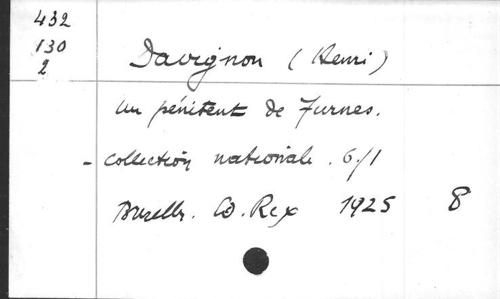 432
130
2
Davignon (Henri)
Un pénitent de Furnes.
- Collection nationale. 6/1
Bruxelles. Ed. Rex 1925 8